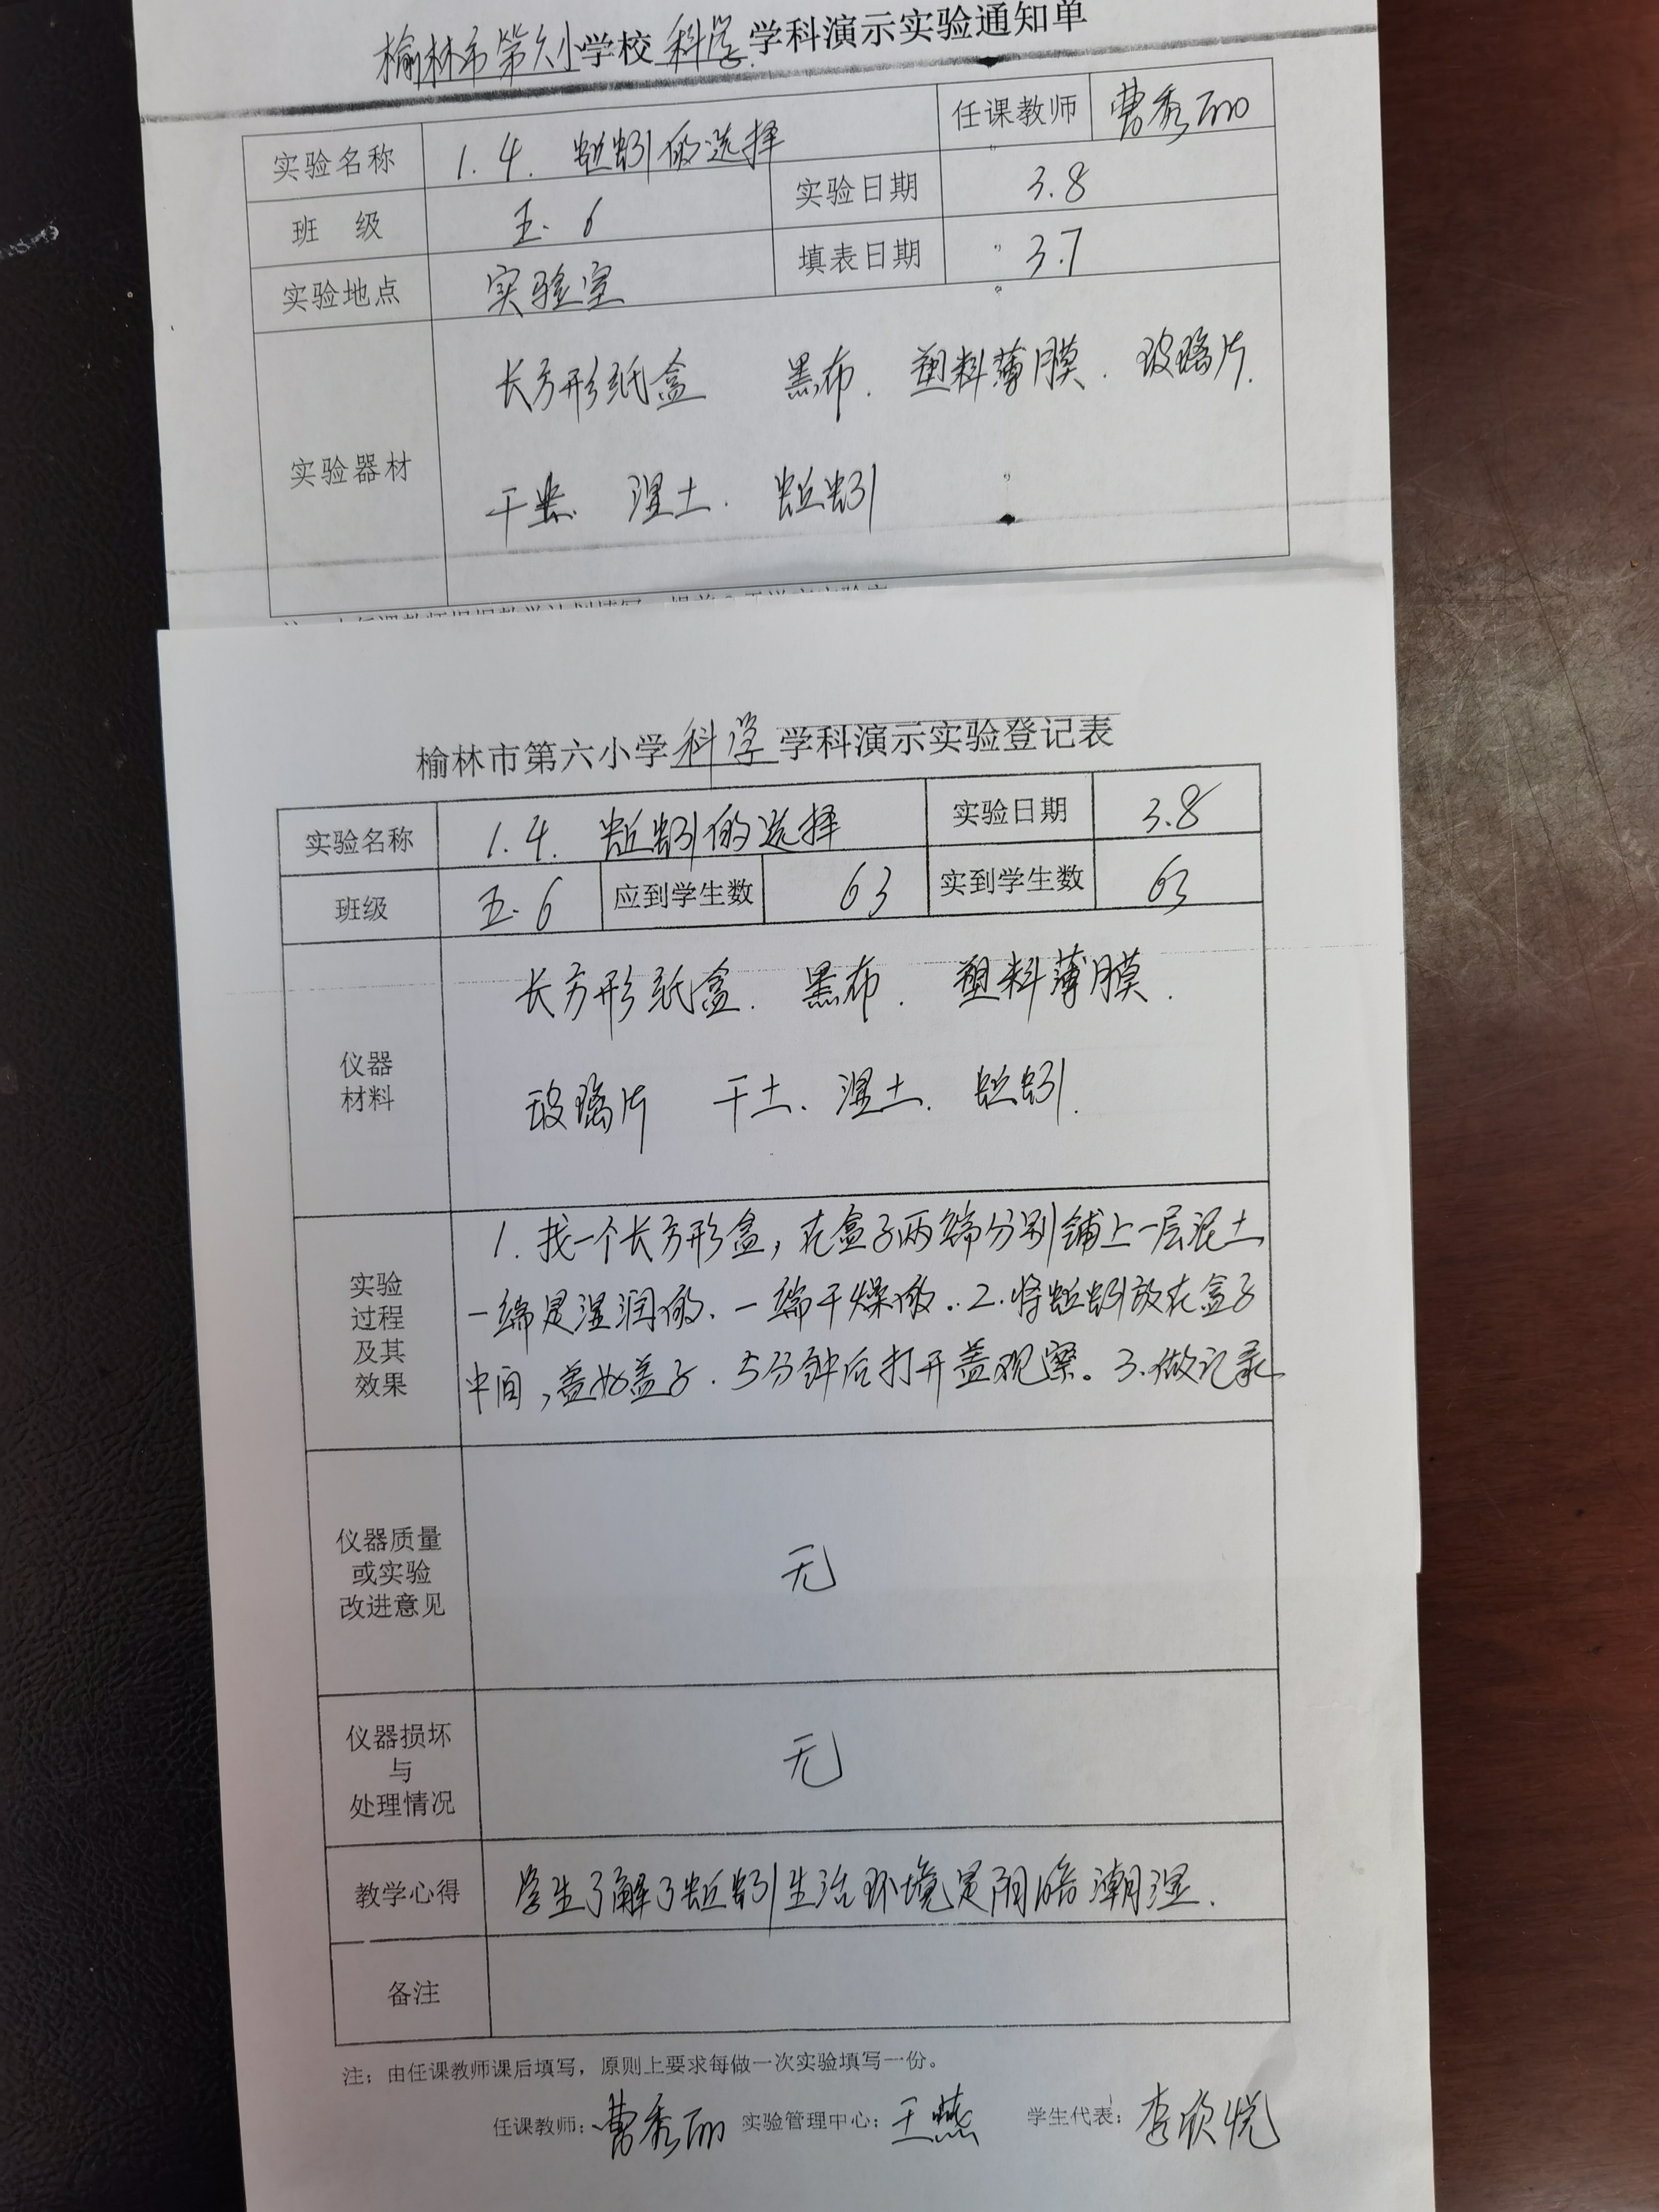 榆林市第六小学校 科学 学科演示实验通知单
实验名称 1.4. 蚯蚓的选择 任课教师 曹秀丽
班 级 五.6 实验日期 3.8
实验地点 实验室 填表日期 3.7
实验器材
长方形纸盒 黑布. 塑料薄膜. 玻璃片.
干土. 湿土. 蚯蚓
榆林市第六小学科学学科演示实验登记表
实验名称 1.4. 蚯蚓的选择 实验日期 3.8
班级 五.6 应到学生数 63 实到学生数 63
仪器
材料
长方形纸盒. 黑布. 塑料薄膜.
玻璃片 干土、湿土. 蚯蚓.
实验
过程
及其
效果
1. 找一个长方形盒,在盒子两端分别铺上一层泥土
一端是湿润的、一端干燥的..2.将蚯蚓放在盒子
中间,盖好盖子.5分钟后打开盖观察。3.做记录
仪器质量
或实验
改进意见
无
仪器损坏
与
处理情况
无
教学心得 学生了解了蚯蚓生活环境是阴暗潮湿.
备注
注:由任课教师课后填写,原则上要求每做一次实验填写一份。
任课教师:曹秀丽 实验管理中心:王燕 学生代表:李欣悦